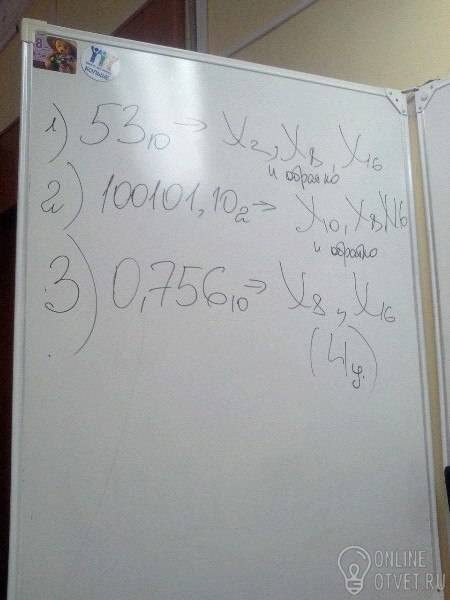 1) 53₁₀ → X₂, X₈, X₁₆
и обратно
2) 100101,10₂ → X₁₀, X₈ X₁₆
и обратно
3) 0,756₁₀ → X₈, X₁₆
(4ц.)
ONLINE
OTVET.RU